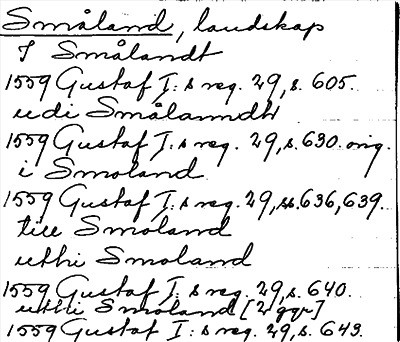 Småland, landskap
I Smålandt
1559 Gustaf I:s reg. 29, s. 605.
udi Smålanndtt
1559 Gustaf I:s reg. 29, s. 630. orig.
i Smoland
1559 Gustaf I:s reg. 29, ss. 636, 639.
till Smoland
uthi Smoland
1559 Gustaf I:s reg. 29, s. 640.
uthi Smoland [2 ggr]
1559 Gustaf I:s reg. 29, s. 643.